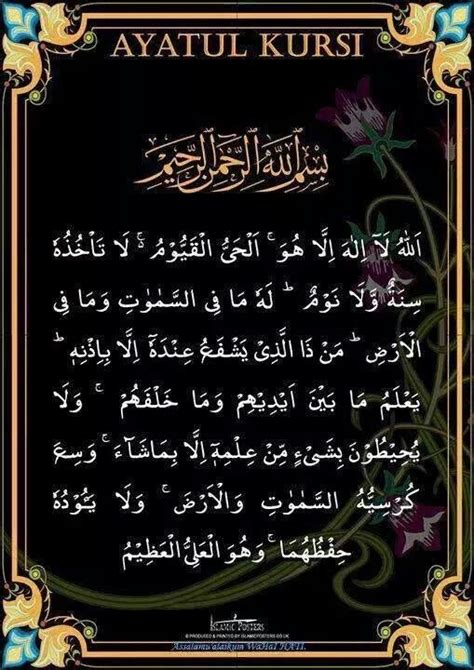 AYATUL KURSI
بِسْمِ اللّٰهِ الرَّحْمٰنِ الرَّحِيْمِ
اَللّٰهُ لَآ اِلٰهَ اِلَّا هُوَ ۚ اَلْحَىُّ الْقَيُّوْمُ ۬ۚ لَا تَاْخُذُهٗ
سِنَةٌ وَّلَا نَوْمٌ ؕ لَهٗ مَا فِى السَّمٰوٰتِ وَمَا فِى
الْاَرْضِ ؕ مَنْ ذَا الَّذِىْ يَشْفَعُ عِنْدَهٗٓ اِلَّا بِاِذْنِهٖ ؕ
يَعْلَمُ مَا بَيْنَ اَيْدِيْهِمْ وَمَا خَلْفَهُمْ ۚ وَلَا
يُحِيْطُوْنَ بِشَىْءٍ مِّنْ عِلْمِهٖٓ اِلَّا بِمَاشَآءَ ۚ وَسِعَ
كُرْسِيُّهُ السَّمٰوٰتِ وَالْاَرْضَ ۚ وَلَا يَـُٔوْدُهٗ
حِفْظُهُمَا ۚ وَهُوَ الْعَلِىُّ الْعَظِيْمُ
ISLAMIC POSTERS
© PRODUCED & PRINTED BY ISLAMICPOSTERS.CO.UK